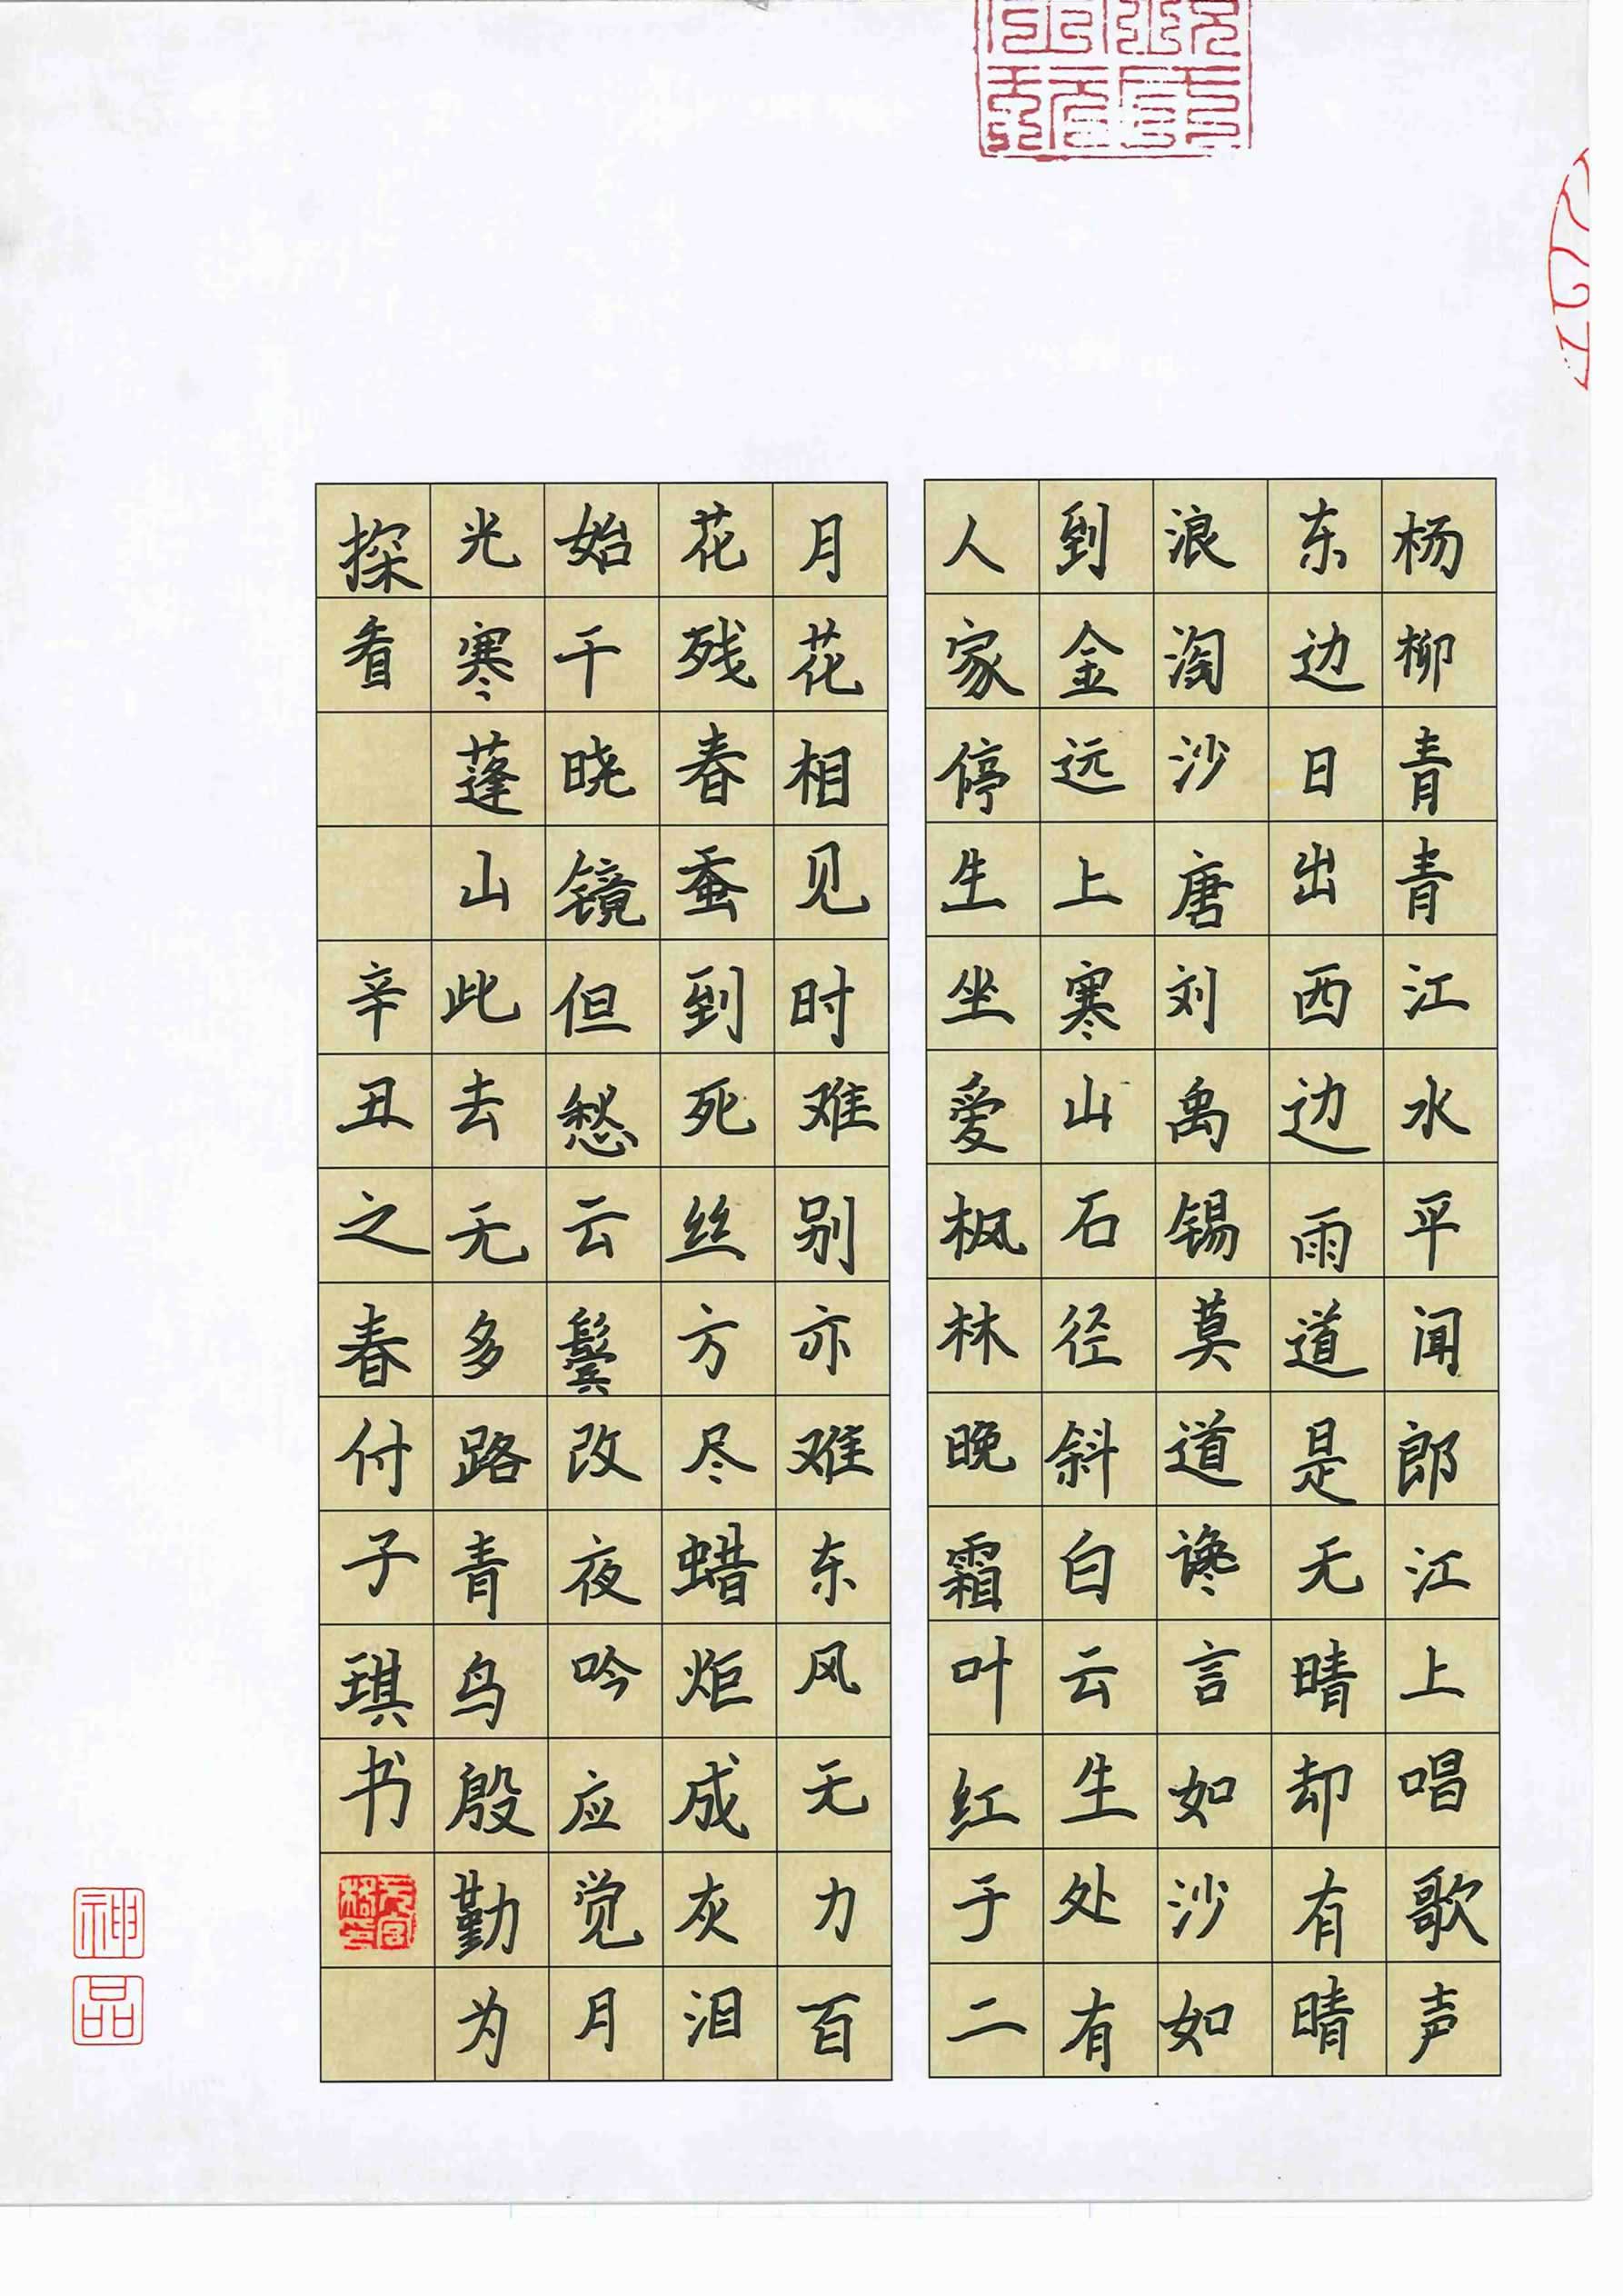 杨柳青青江水平闻郎江上唱歌声
东边日出西边雨道是无晴却有晴
浪淘沙唐刘禹锡莫道谗言如沙如
到金远上寒山石径斜白云生处有
人家停生坐爱枫林晚霜叶红于二
月花相见时难别亦难东风无力百
花残春蚕到死丝方尽蜡炬成灰泪
始干晓镜但愁云鬓改夜吟应觉月
光寒蓬山此去无多路青鸟殷勤为
探看辛丑之春付子琪书
神品